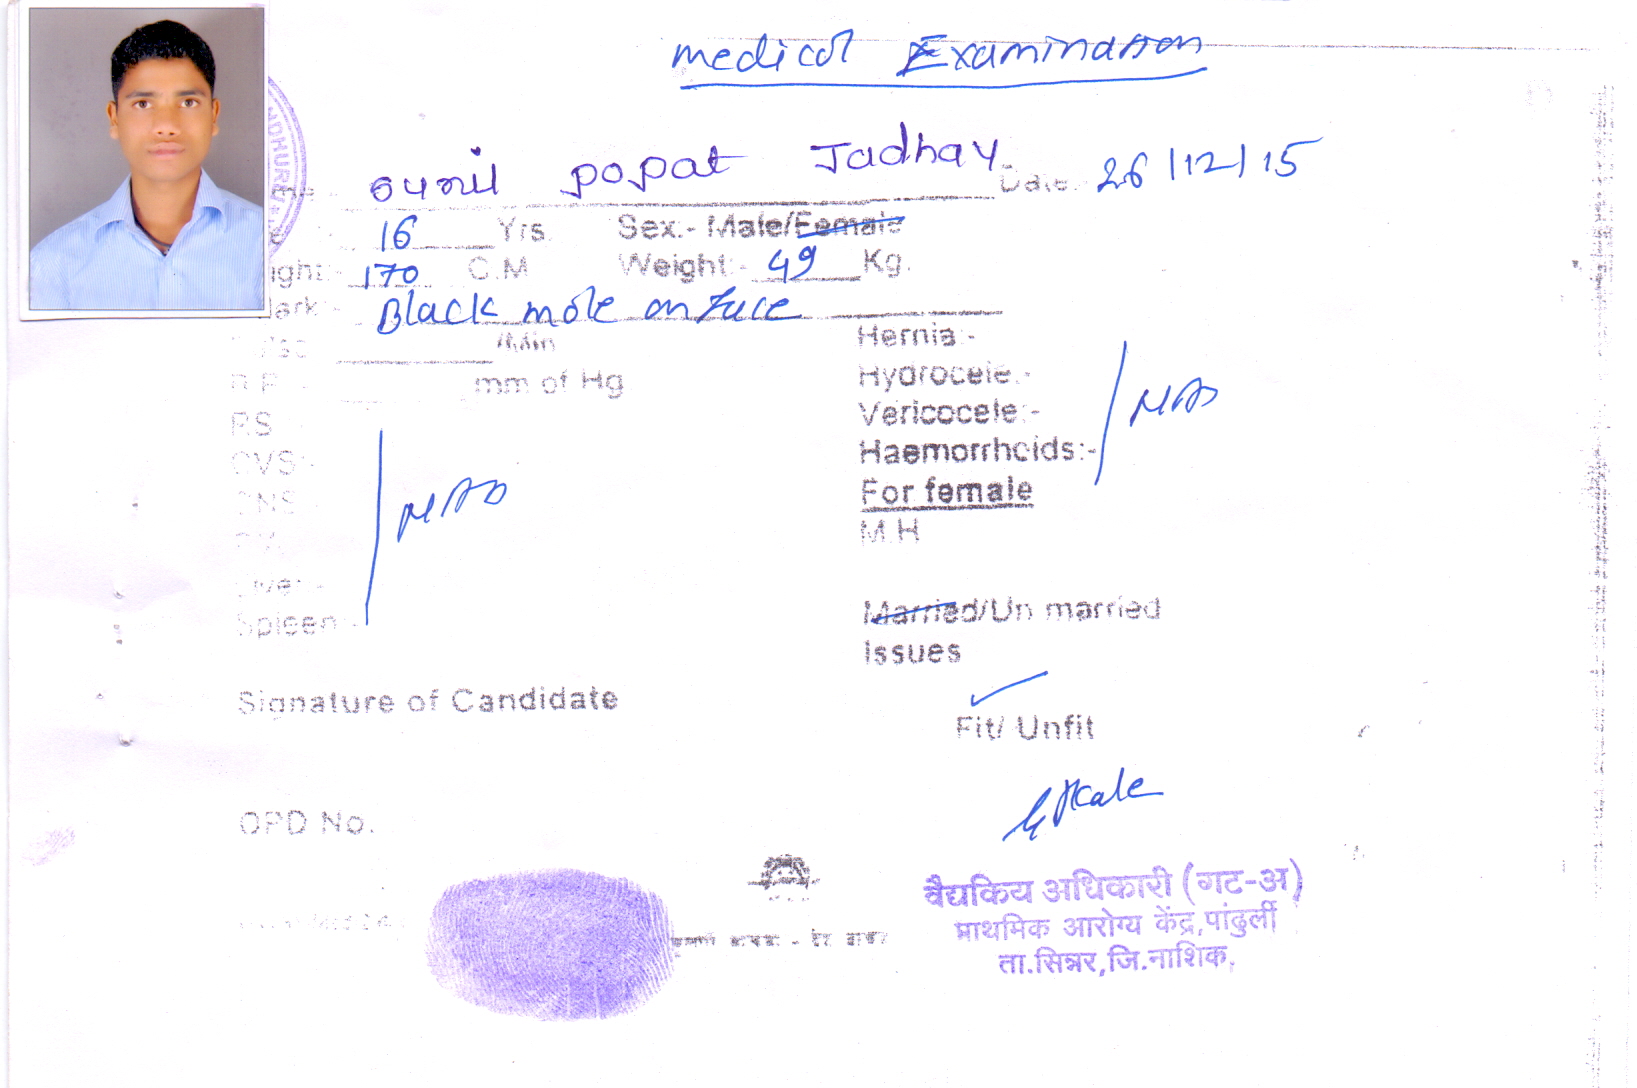 medical Examination
sunil popat Jadhav Date: 26/12/15
16 Yrs. Sex:- Male/Female
170 C.M Weight:- 49 Kg.
Black mole on face
/Min
Hernia:-
mm of Hg
Hydrocele:-
RS
Vericocele:-
NAD
CVS:-
Haemorrhoids:-
CNS
NAD
For female
M.H
Liver:-
Spleen:-
Married/Un married
Issues
Signature of Candidate
Fit/ Unfit
OPD No.
वैद्यकिय अधिकारी (गट-अ)
प्राथमिक आरोग्य केंद्र,पांढुर्ली
ता.सिन्नर,जि.नाशिक.